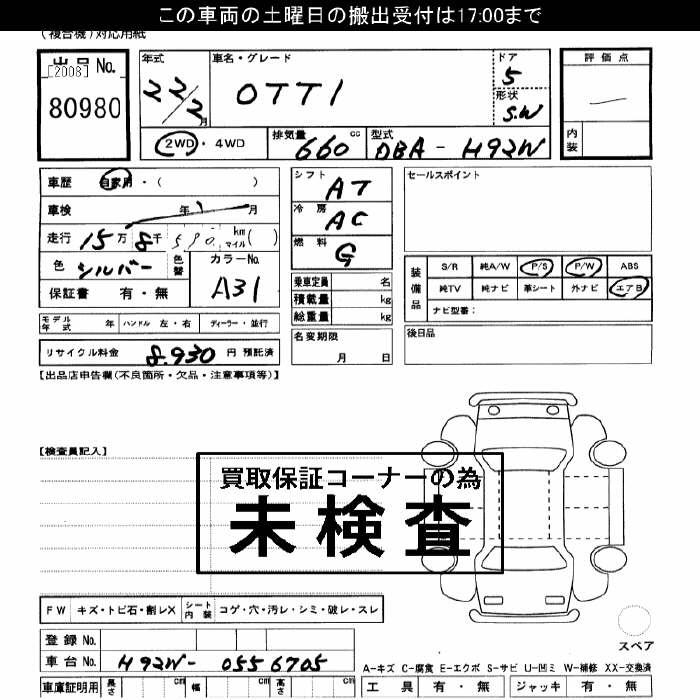 この車両の土曜日の搬出受付は17:00まで
(複合機)対応用紙
出品 No.
[2008]
80980
年式
22/2月
車名・グレード
OTTI
ドア
5
形状
S.W
評価点
内装
2WD・4WD
排気量
660 cc
型式
DBA - H92W
車歴 自家用・( )
車検 年 月
走行 15万 8千 590 km マイル( )
色 シルバー 色替
カラーNo.
A31
保証書 有・無
シフト
AT
冷房
AC
燃料
G
セールスポイント
乗車定員 名
積載量 kg
総重量 kg
装備品
S/R 純A/W P/S P/W ABS
純TV 純ナビ 革シート 外ナビ エアB
ナビ型番:
モデル年式 年 ハンドル 左・右 ディーラー・並行
名変期限
月 日
後日品
リサイクル料金 8.930 円 預託済
【出品店申告欄(不良箇所・欠品・注意事項等)】
【検査員記入】
買取保証コーナーの為
未検査
FW キズ・トビ石・割レX シート内装 コゲ・穴・汚レ・シミ・破レ・スレ
登録 No.
車台 No. H92W- 0556705
スペア
A-キズ C-腐食 E-エクボ S-サビ U-凹ミ W-補修 XX-交換済
車庫証明用 長さ cm 幅 cm 高さ cm
工具 有・無 ジャッキ 有・無